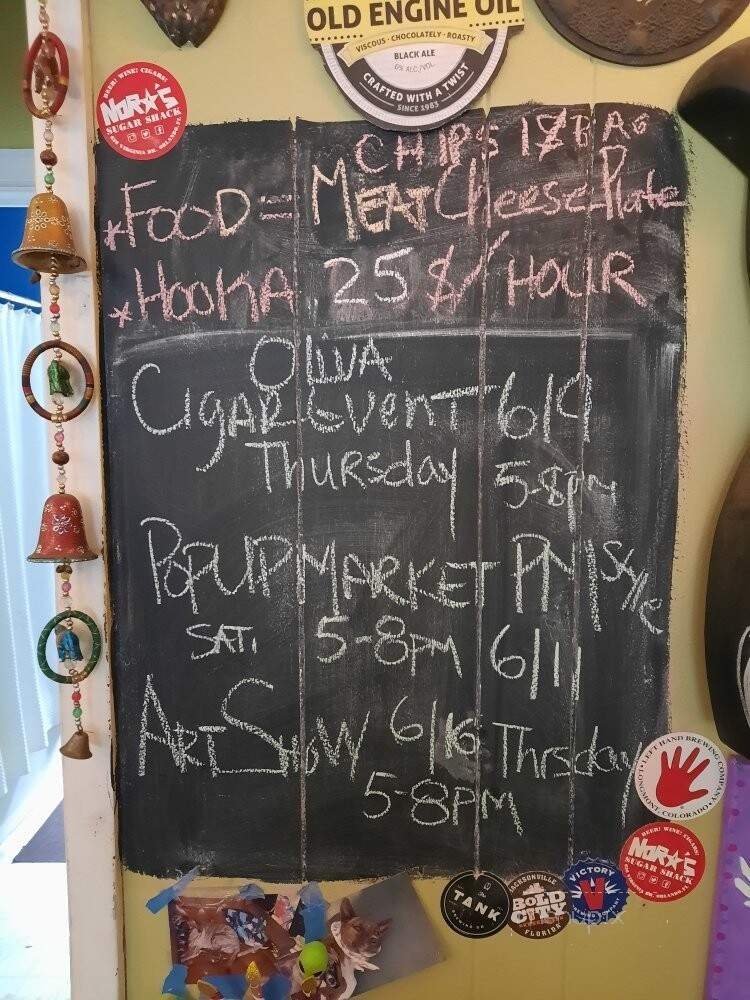 OLD ENGINE OIL
VISCOUS · CHOCOLATELY · ROASTY
BLACK ALE
6% ALC./VOL.
CRAFTED WITH A TWIST
SINCE 1983
BEER! WINE! CIGARS!
NORA'S
SUGAR SHACK
636 VIRGINIA DR. ORLANDO, FL
CHIPS 1$ BAG
*FOOD = MEAT Cheese Plate
*HOOKA 25 $/HOUR
OLIVA
CIGAR EVENT 6/9
THURSDAY 5-8pm
POPUP MARKET PIN Style
SAT. 5-8PM 6/11
ART SHOW 6/16 Thrsday
5-8PM
LEFT HAND BREWING COMPANY
LONGMONT, COLORADO
BEER! WINE! CIGARS!
NORA'S
SUGAR SHACK
636 VIRGINIA DR. ORLANDO, FL
TANK
BREWING CO
JACKSONVILLE
BOLD CITY
FLORIDA
VICTORY
V